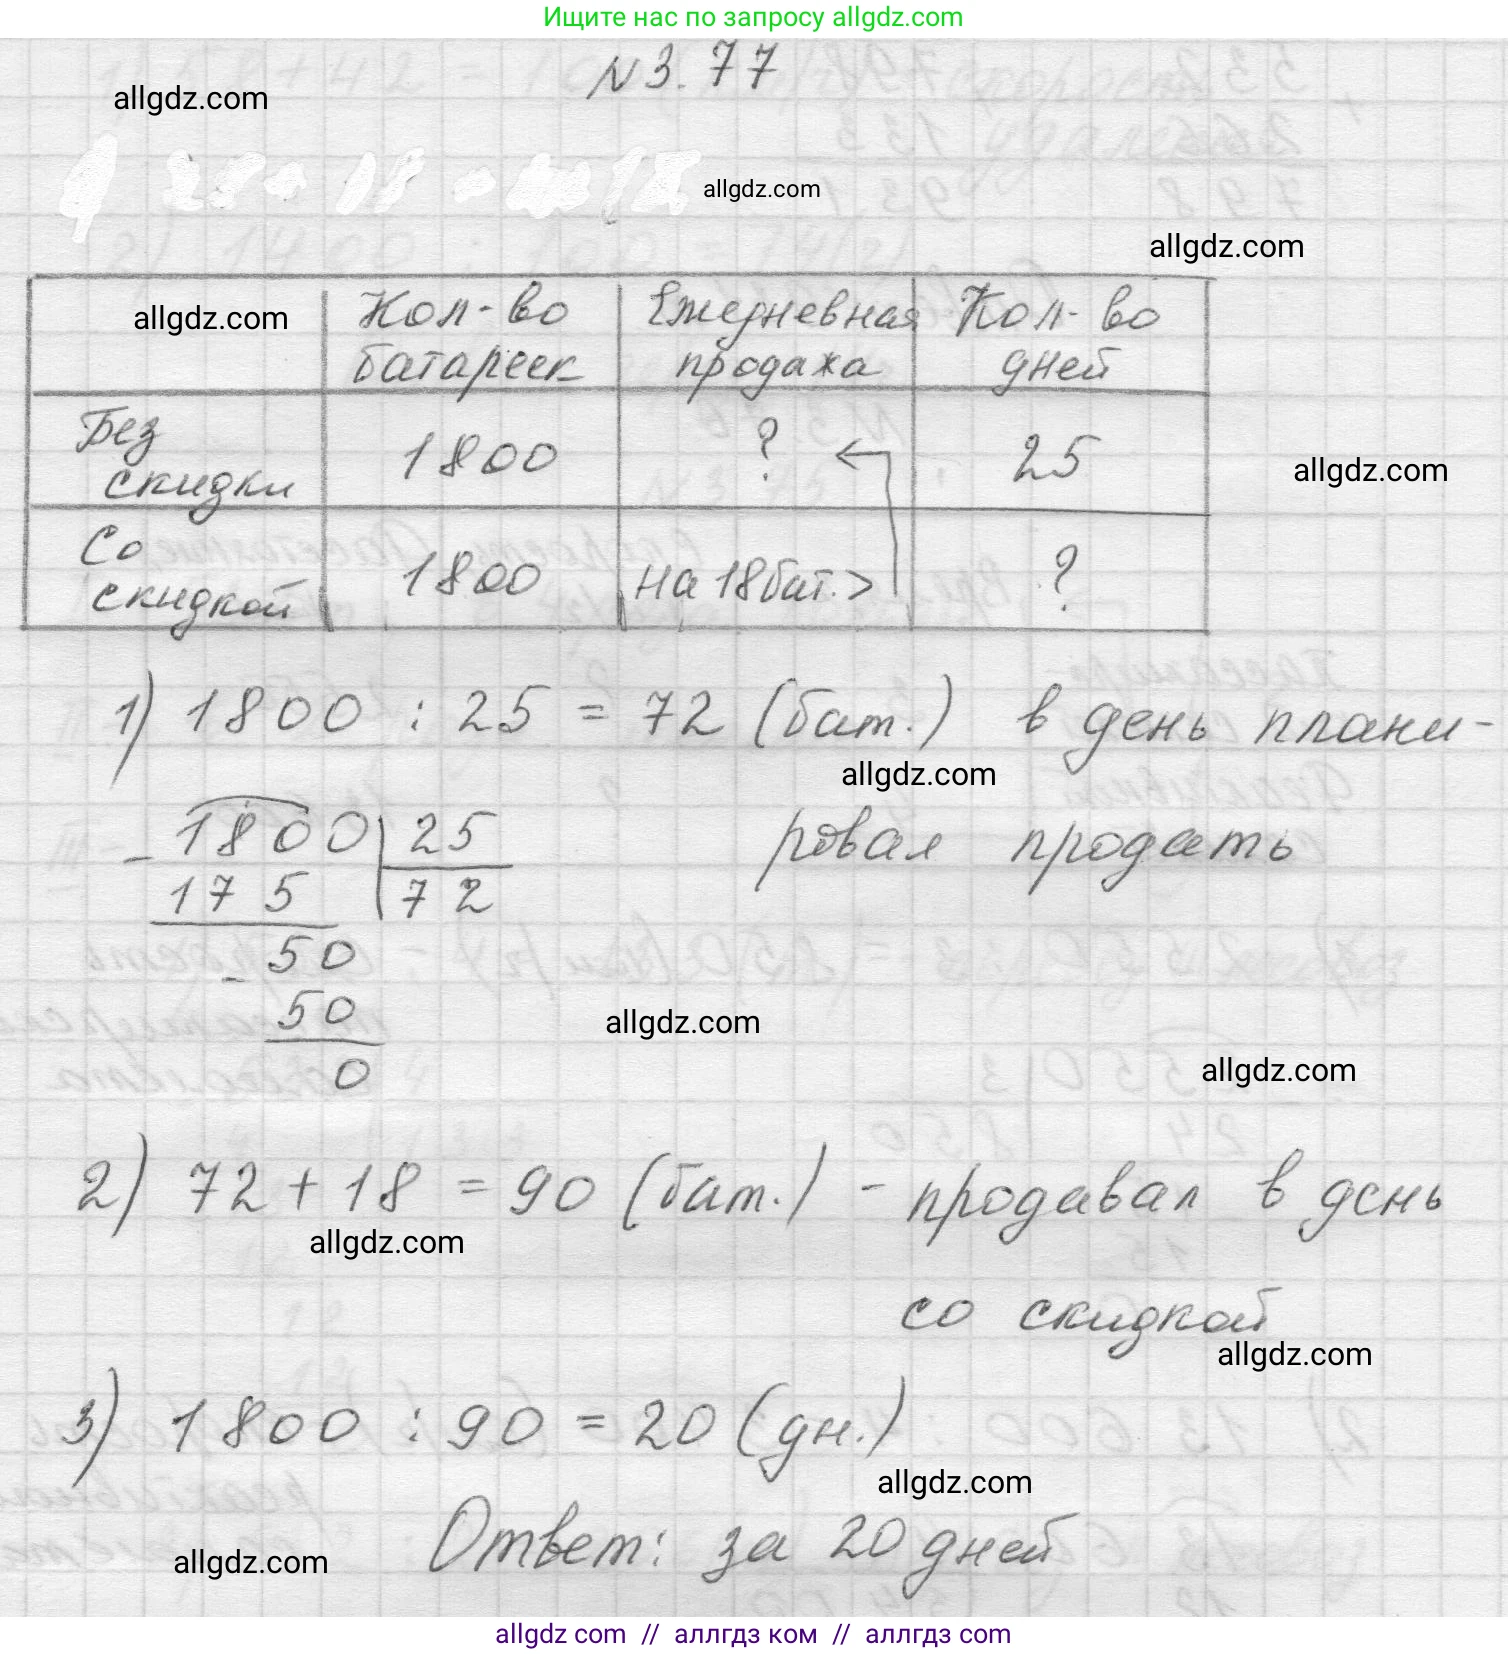 Ищите нас по запросу allgdz.com
N 3.77
allgdz.com
allgdz.com
allgdz.com
allgdz.com
Кол-во батареек
Ежедневная продажа
Кол-во дней
Без скидки
1800
?
25
allgdz.com
Со скидкой
1800
на 18 бат. >
?
1) 1800 : 25 = 72 (бат.) в день плани-
allgdz.com
ровал продать
- 1800 25
175 72
- 50
50
0
allgdz.com
allgdz.com
2) 72 + 18 = 90 (бат.) - продавал в день
allgdz.com
со скидкой
allgdz.com
3) 1800 : 90 = 20 (дн.)
allgdz.com
Ответ: за 20 дней
allgdz.com
allgdz com // аллгдз ком // аллгдз com